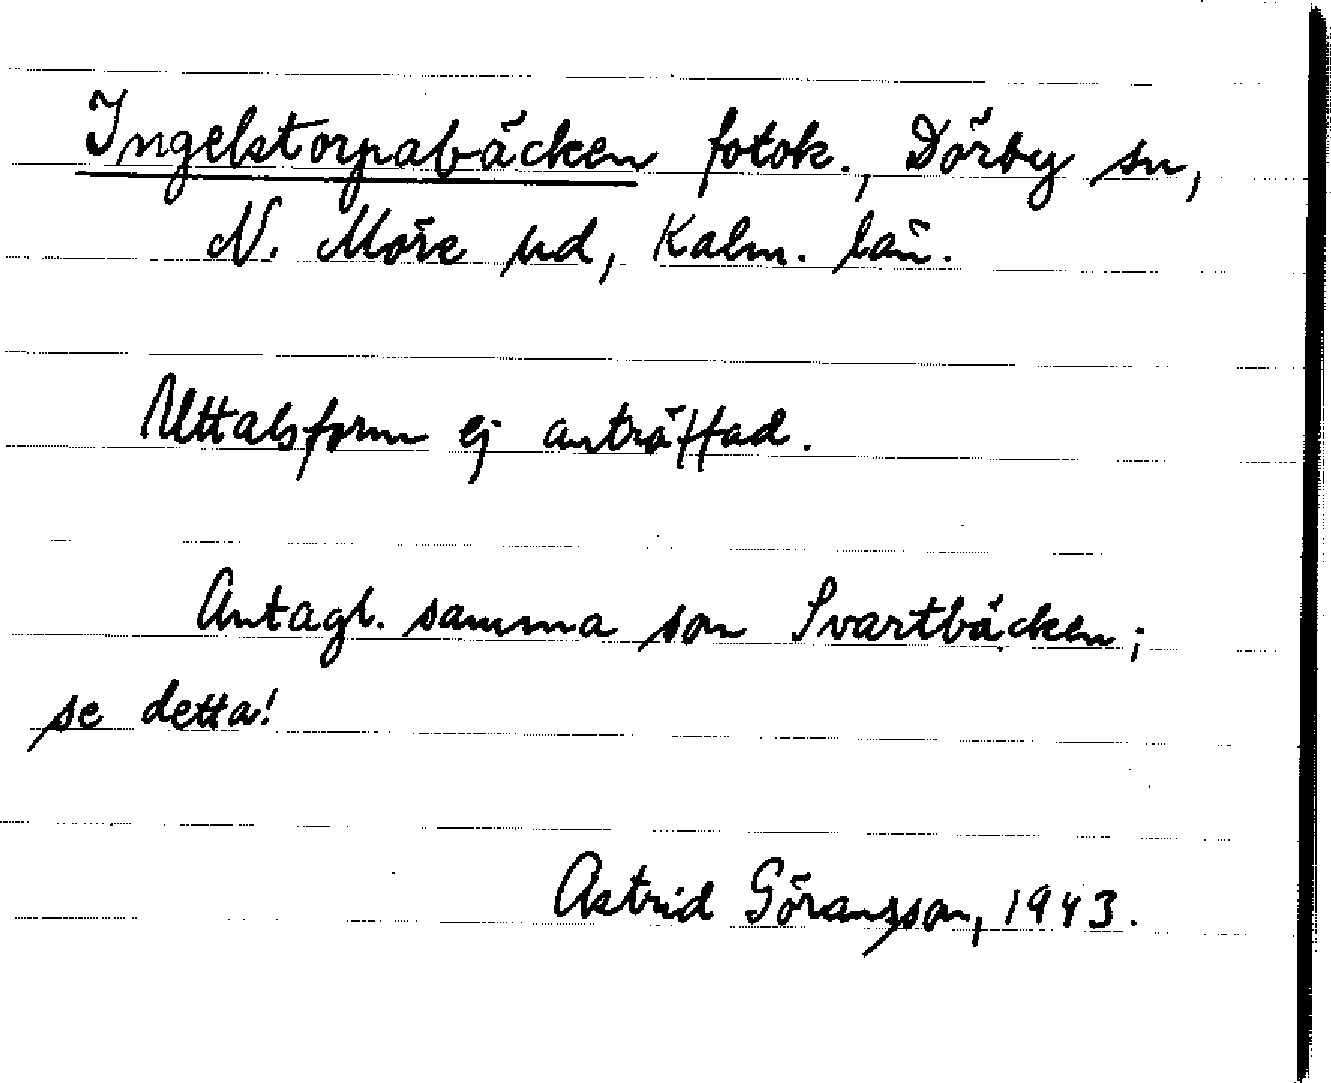 Ingelstorpabäcken fotok., Dörby sn,
N. Möre hd, Kalm. län.
Uttalsform ej anträffad.
Antagl. samma som Svartbäcken;
se detta!
Astrid Göransson, 1943.